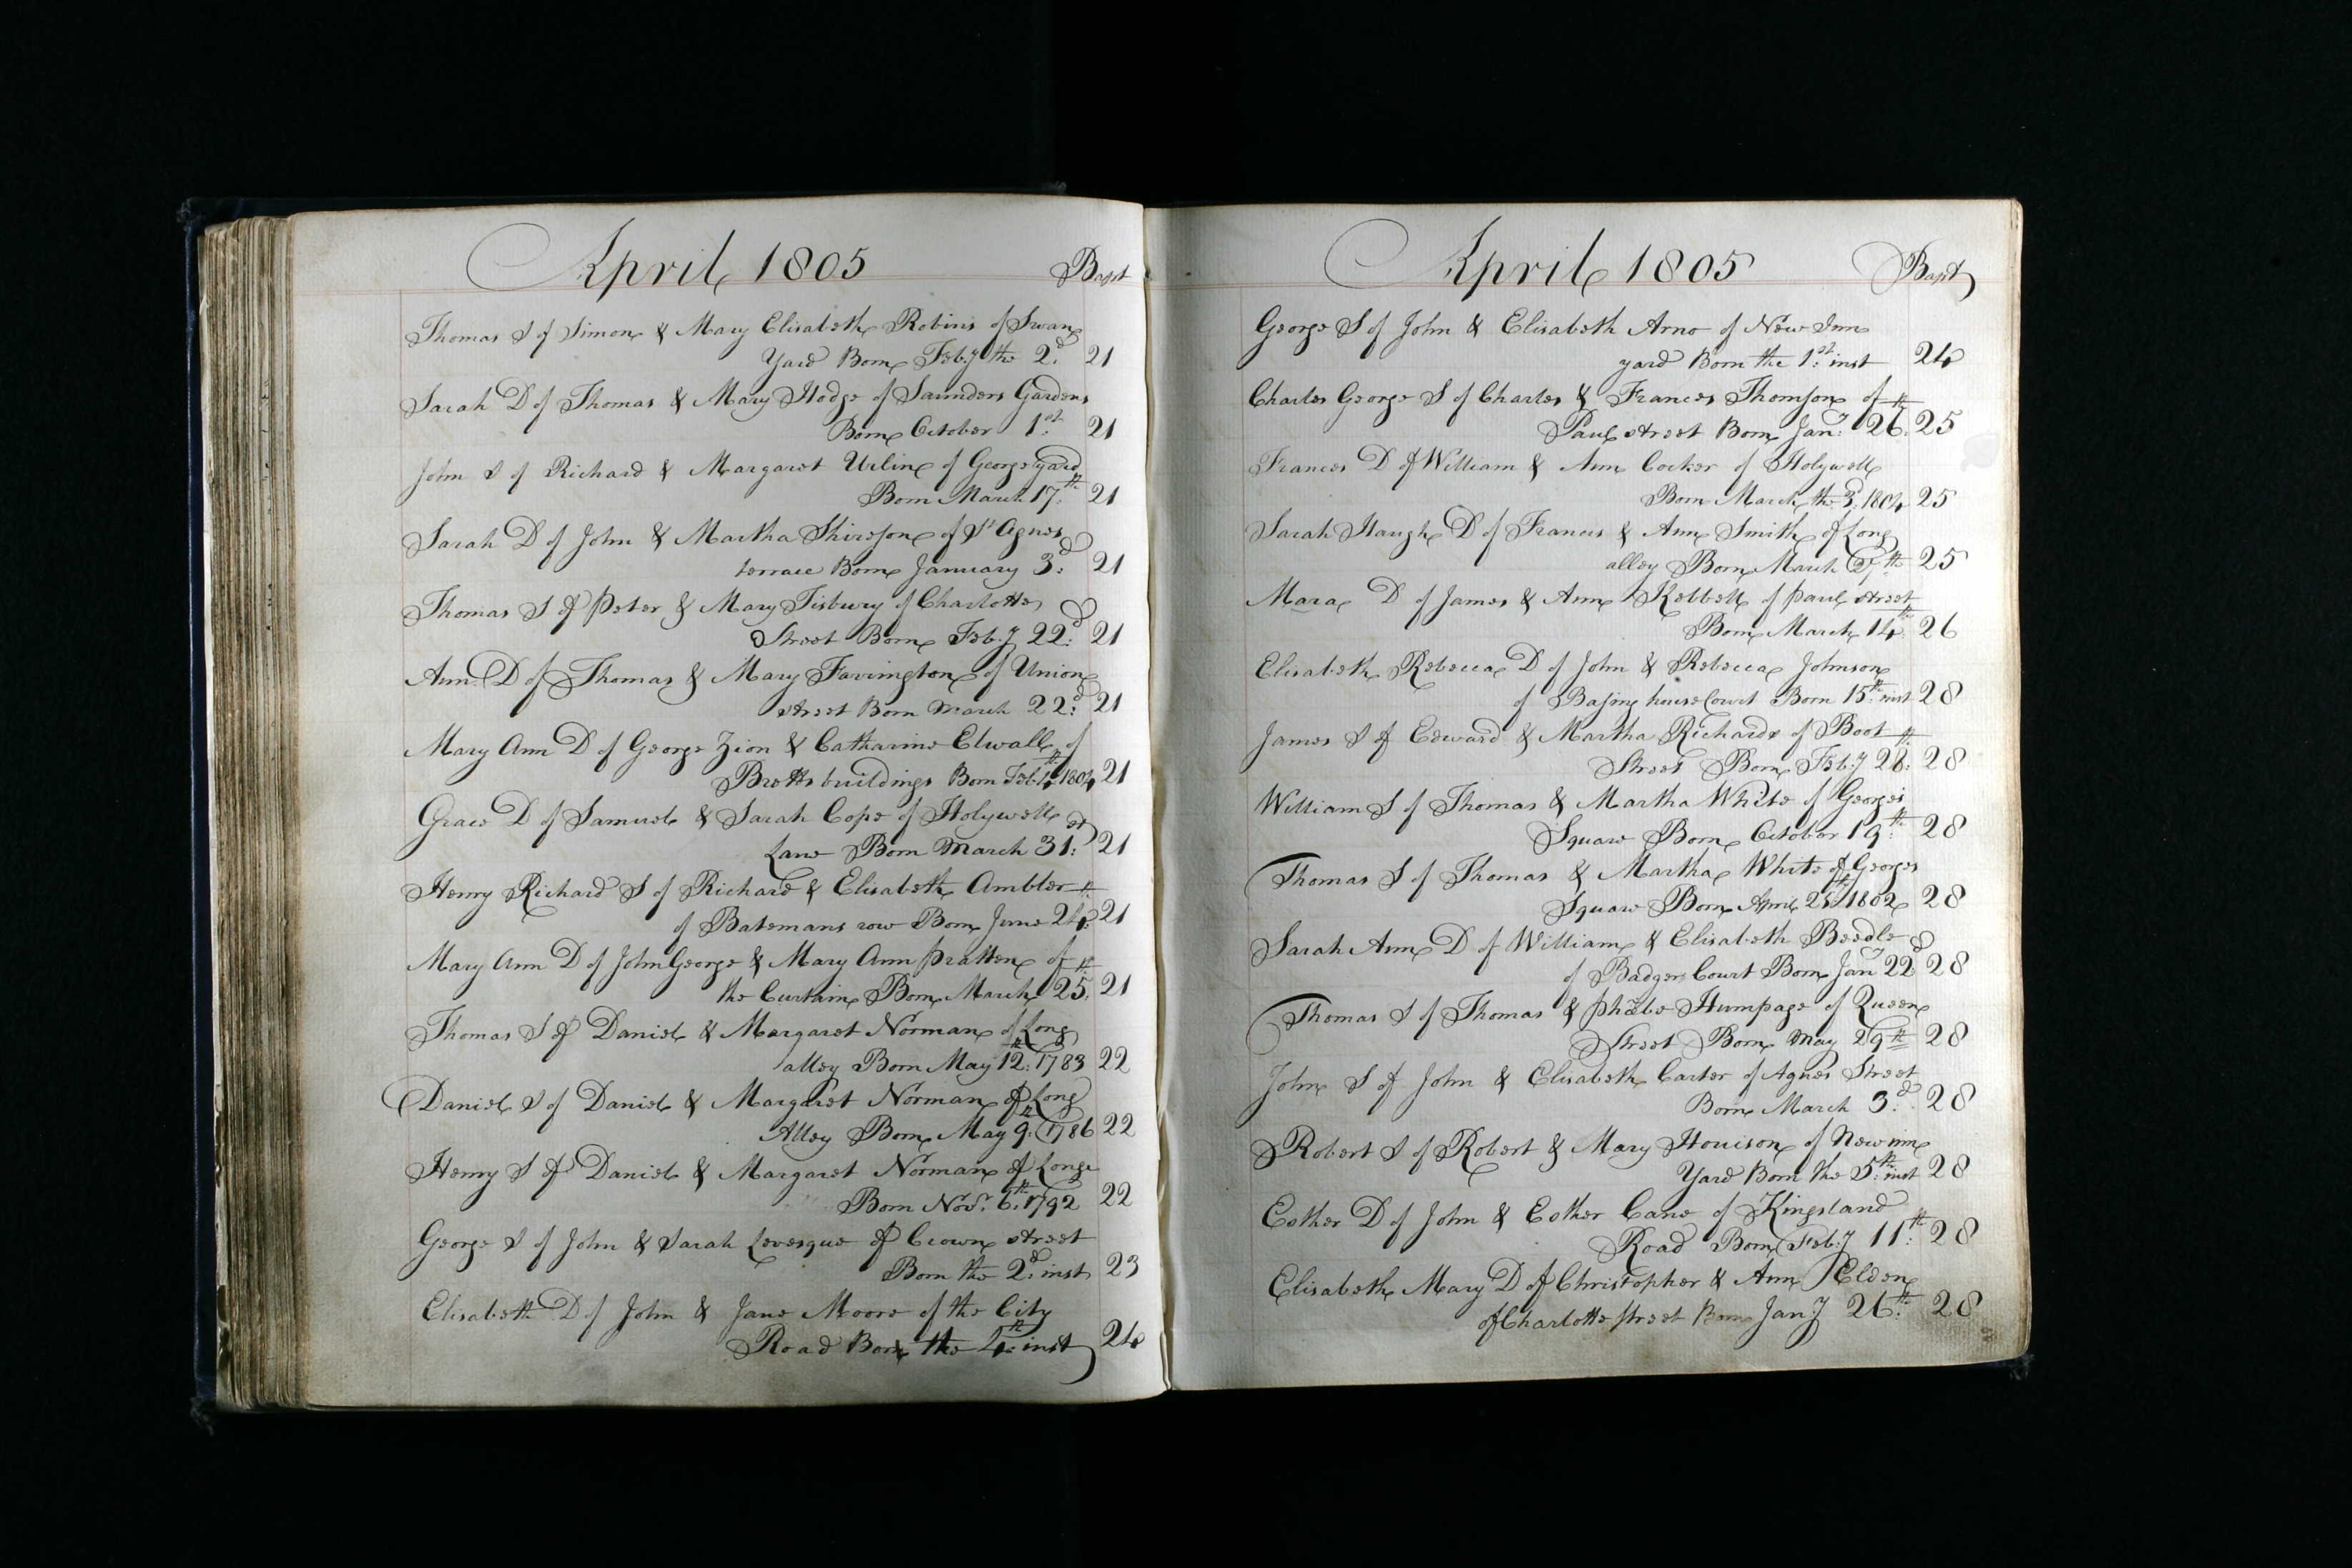 April 1805 Bapt
Thomas S of Simon & Mary Elisabeth Robins of Swan
Yard Born Feby the 2d 21
Sarah D of Thomas & Mary Hodge of Saunders Gardens
Born October 1st 21
John S of Richard & Margaret Urlin of George yard
Born March 17th 21
Sarah D of John & Martha Shirefson of St Agnes
terrace Born January 3d 21
Thomas S of Peter & Mary Tisbury of Charlotte
Street Born Feby 22d 21
Ann D of Thomas & Mary Farrington of Union
street Born March 22d 21
Mary Ann D of George Zion & Catharine Elwall of
Bretts buildings Born Feb 4th 1804 21
Grace D of Samuel & Sarah Cope of Holywell
Lane Born March 31st 21
Henry Richard S of Richard & Elisabeth Ambler
of Batemans row Born June 24th 21
Mary Ann D of John George & Mary Ann Pratten of
the Curtain Born March 25th 21
Thomas S of Daniel & Margaret Norman of Long
alley Born May 12th 1783 22
Daniel S of Daniel & Margaret Norman of Long
Alley Born May 9th 1786 22
Henry S of Daniel & Margaret Norman of Longe
Born Nov. 6th 1792 22
George S of John & Sarah Levesque of Crown street
Born the 2d inst 23
Elisabeth D of John & Jane Moore of the City
Road Born the 4th inst 24
April 1805 Bapt
George S of John & Elisabeth Arno of New Inn
yard Born the 1st inst 24
Charles George S of Charles & Frances Thomson of
Paul street Born Jany 26th 25
Frances D of William & Ann Cocker of Holywell
Born March the 3d 1804 25
Sarah Haugh D of Francis & Ann Smith of Long
alley Born March 27th 25
Mara D of James & Ann Kebbell of Paul street
Born March 14th 26
Elisabeth Rebecca D of John & Rebecca Johnson
of Basing house Court Born 15th inst 28
James S of Edward & Martha Richards of Boot
Street Born Feby 28th 28
William S of Thomas & Martha White of Georges
Square Born October 19th 28
Thomas S of Thomas & Martha White of Georges
Square Born April 25th 1802 28
Sarah Ann D of William & Elisabeth Beedle
of Badgers Court Born Jany 22d 28
Thomas S of Thomas & Phœbe Humpage of Queen
Street Born May 29th 28
John S of John & Elisabeth Carter of Agnes Street
Born March 3d 28
Robert S of Robert & Mary Houison of New inn
Yard Born the 5th inst 28
Esther D of John & Esther Cane of Kingsland
Road Born Feby 11th 28
Elisabeth Mary D of Christopher & Ann Elden
of Charlotte street Born Jany 26th 28